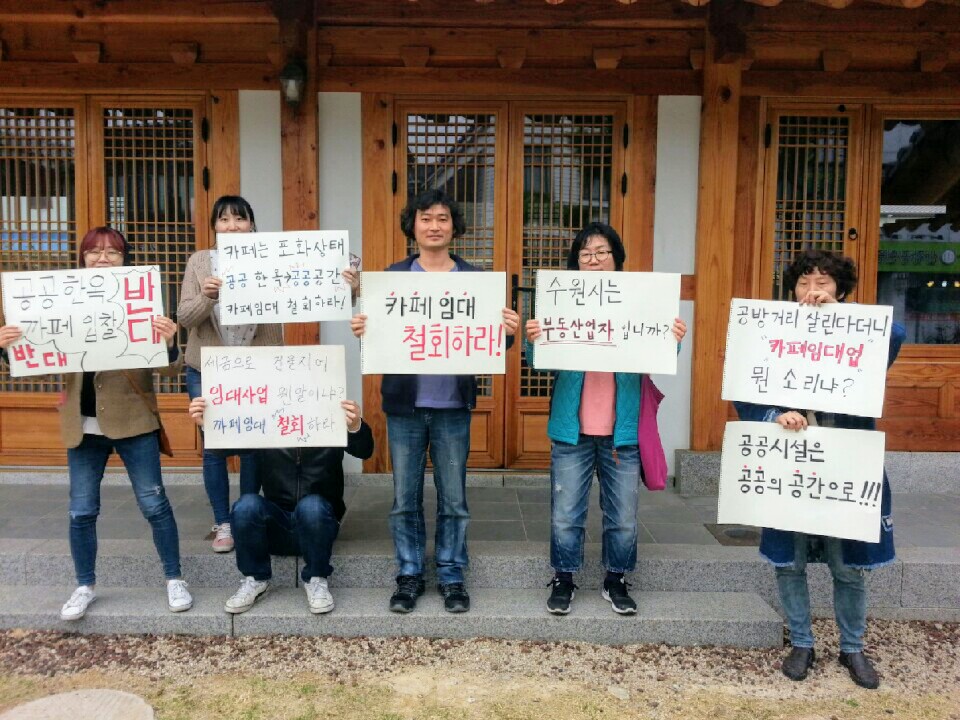 공공한옥
카페 입찰
반대
반대
카페는 포화상태
공공한옥→공공공간
카페임대 철회하라!
세금으로 건물지어
임대사업 웬말이냐?
카페임대 철회하라
카페 임대
철회하라!
수원시는
부동산업자 입니까?
공방거리 살린다더니
"카페임대업"
뭔 소리냐?
공공시설은
공공의 공간으로!!!